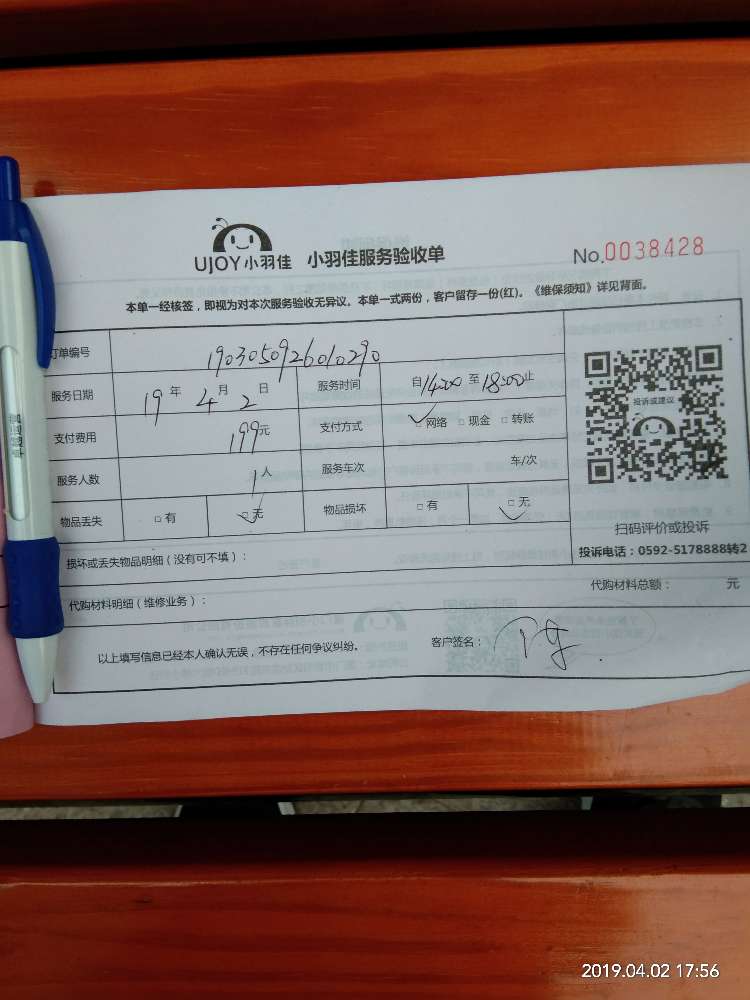 UJOY小羽佳 小羽佳服务验收单 No.0038428
本单一经核签，即视为对本次服务验收无异议。本单一式两份，客户留存一份(红)。《维保须知》详见背面。
订单编号 1903050926010290
服务日期 19年4月2日 服务时间 自14:00至18:00止
支付费用 199元 支付方式 □网络 □现金 □转账
投诉或建议
服务人数 1人 服务车次 车/次
物品丢失 □有 □无 物品损坏 □有 □无
扫码评价或投诉
投诉电话：0592-5178888转2
损坏或丢失物品明细（没有可不填）：
代购材料明细（维修业务）： 代购材料总额： 元
以上填写信息已经本人确认无误，不存在任何争议纠纷。 客户签名：
2019.04.02 17:56